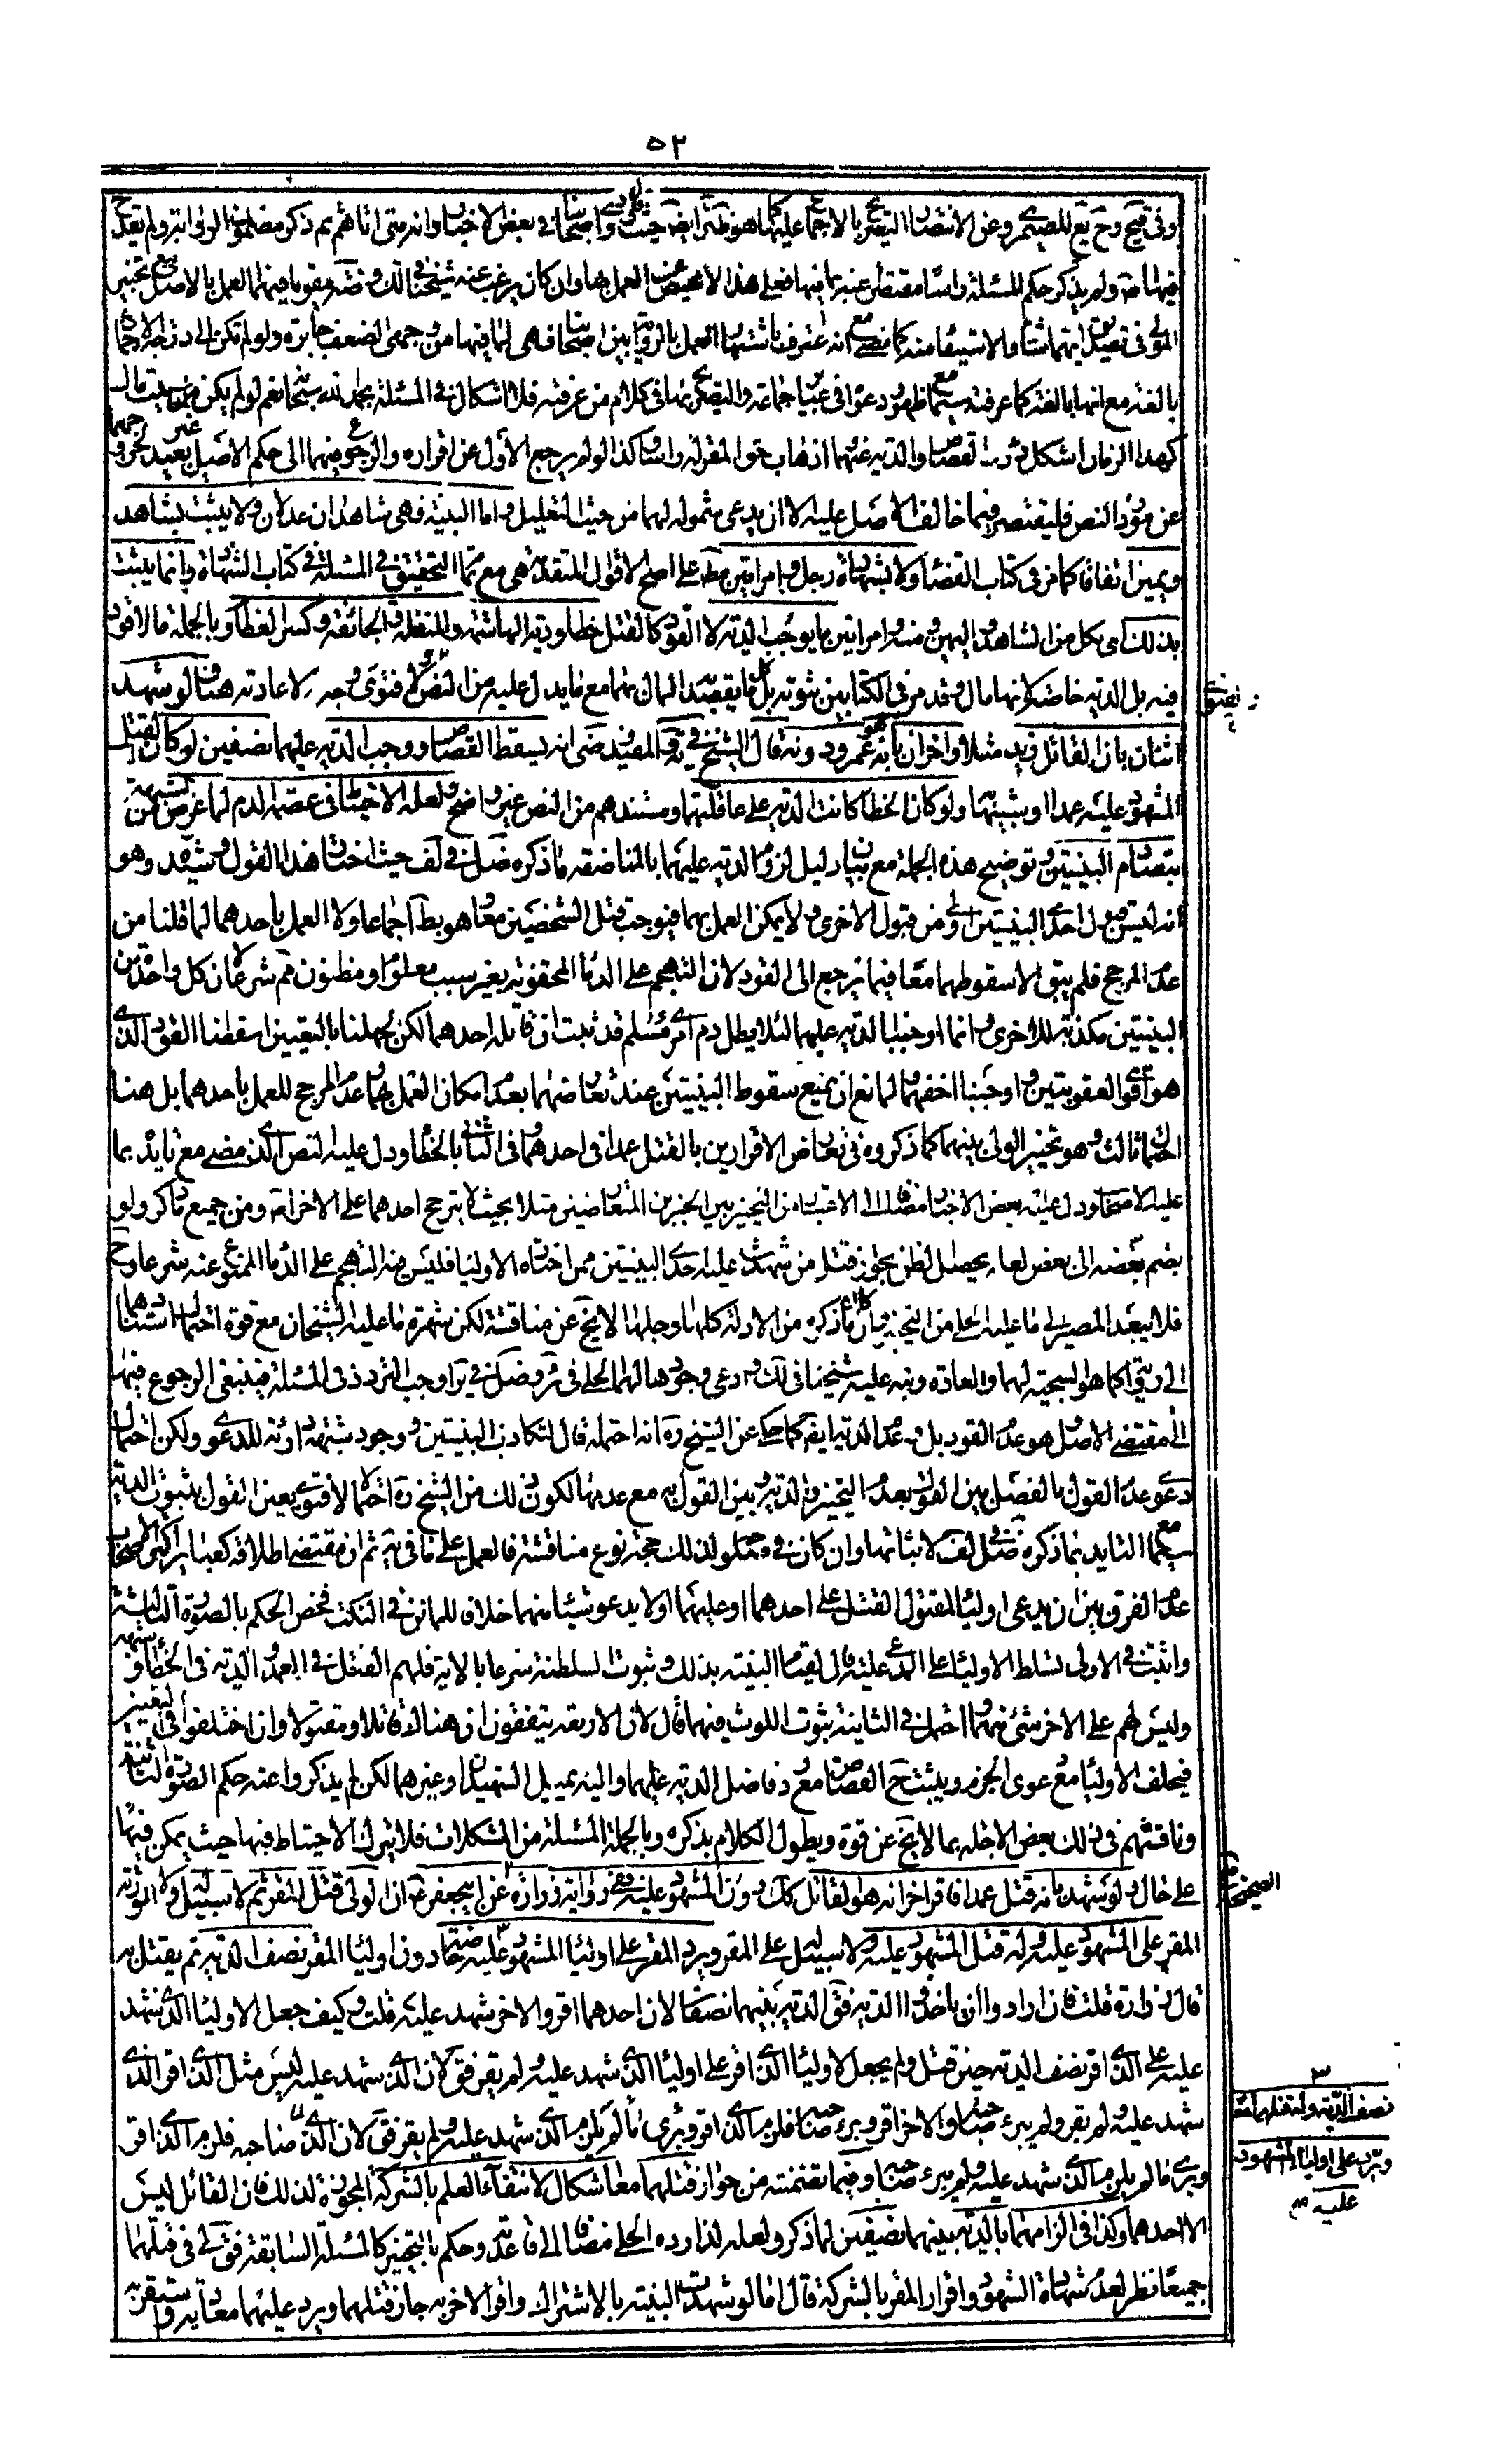 ٥٢
فيها ولم يذكر حكم المسئلة العمل بها وان كان يرغب عنه شيخنا العمل بالاصل
بالغة مع انها بالغة كما عرفته في كلام من عرفته فلا اشكال في المسئلة بحمد الله سبحانه نعم لو لم يكن بيت مال
كهذا الزمان اشكل القصاص والدية عنهما اذهاب حق المقر له وكذا لو لم يرجع الأول عن اقراره والرجوع فيهما الى حكم الاصل غير بعيد
عن مورد النص فليقتصر فيما خالف الاصل عليه الا ان يدعى شموله لهما من حيث التعليل واما البينة فهي شاهدان عدلان ولا يثبت بشاهد
ويمين اتفاقا كما مر في كتاب القضاء ولا بشهادة رجل وامراتين مط على اصح الاقوال المتقدمة هي مع تمام التحقيق في المسئلة في كتاب الشهادة وانما يثبت
بذلك اى بكل من الشاهد واليمين ومنه وامراتين ما يوجب الدية لا القود كالقتل خطا ودية الهاشمة والمنقلة والجائفة وكسر العظام وبالجملة ما لا قود
فيه بل الدية خاصة لانها مال وقد مر في الكتابين ثبوته بكل ما يقصد المال منهما مع ما يدل عليه من النص والفتوى ولا وجه لاعادته هنا ولو شهد
اثنان بان القاتل زيد مثلا واخران بانه عمرو دونه قال الشيخ في يه والمفيد والقاضى انه يسقط القصاص ووجب الدية عليهما نصفين لو كان القتل
المشهود عليه عمدا او شبيها به ولو كان الخطا كانت الدية على عاقلتهما ومستندهم من النص غير واضح ولعله الاحتياط في عصمة الدم لما عرض من الشبهة
بتصادم البينتين وتوضيح هذه الجملة مع بيان دليل لزوم الدية عليهما بالمناصفة ما ذكره الفاضل في لف حيث اختار هذا القول وشيده وهو
انه ليس قبول احدى البينتين اولى من قبول الاخرى ولا يمكن العمل بهما فيوجب قتل الشخصين معا وهو بط اجماعا ولا العمل باحدهما لما قلنا من
عدم المرجح فلم يبق الا سقوطهما معا فيما يرجع الى القود لان التهجم على الدماء المحقونة بغير سبب معلوم او مظنون مم شرعا لان كل واحدة من
البينتين مكذبة للاخرى وانما اوجبنا الدية عليهما لئلا يطل دم امرء مسلم قد ثبت ان قاتله احدهما لكن لجهلنا بالتعيين اسقطنا القود الذى
هو اقوى العقوبتين واوجبنا اخفهما لمانع ان يمنع سقوط البينتين عند تعارضهما بعدم امكان العمل بهما وعدم المرجح للعمل باحدهما بل هنا
احتمال ثالث وهو تخيير الولى بينهما كما ذكروه في تعارض الاقرارين بالقتل عمدا في احدهما وفي الثاني بالخطا ودل عليه النص الذى مضى مع تايده بما
عليه الاصحاب ودل عليه بعض الاخبار مضافا الى الاعتبار من التخيير بين الخبرين المتعارضين مثلا بحيث لا يترجح احدهما على الاخر ومن جميع ما ذكر ولو
بضم بعضه الى بعض لعله يحصل الظن بجواز قتل من شهدت عليه احدى البينتين ممن اختاره الاولياء فليس فيه التهجم على الدماء الممنوع عنه شرعا وح
فلا يبعد المصير الى ما عليه الحلى من التخيير وان كان ما ذكره من الادلة كلها وجلها لا يخ عن مناقشة لكن شهرة ما عليه الشيخان مع قوة احتمال استنادهما
الى رواية كما هو السجية لهما والعادة ونبه عليه شيخنا في لك وادعى وجودها لهما الحلى في ئر وفضل في ير اوجب التردد في المسئلة فينبغى الرجوع فيها
الى مقتضى الاصل وهو عدم القود بل وعدم الدية ايضا كما حكى عن الشيخ ره انه احتمله قال لتكاذب البينتين ووجود شبهة دارئة للدعوى ولكن احتمال
دعوى عدم القول بالفصل بين القول بعدم التخيير والدية وبين القول به مع عدمها لكون ذلك من الشيخ ره احتمالا لا فتوى يعين القول بثبوت الدية
سيما مع التايد بما ذكره الفاضل في لف لاثباتها وان كان في صلوحه لذلك حجة نوع مناقشة فالعمل على ما في يه ثم ان مقتضى اطلاقه كعبائر اكثر الاصحاب
عدم الفرق بين ان يدعى اولياء المقتول القتل على احدهما او عليهما اولا يدعو شيئا منهما خلافا للماتن في النكت فخص الحكم بالصورة الثالثة
واثبت في الاولى تسلط الاولياء على المدعى عليه قال لقيام البينة بذلك وثبوت السلطنة شرعا بالاية فلهم القتل في العمد والدية في الخطا وشبهه
وليس لهم على الاخر شئ منهما واحتمل في الثانية ثبوت اللوث فيهما قال لان الاربعة يتفقون ان هناك قاتلا ومقتولا وان اختلفوا في التعيين
فيحلف الاولياء مع دعوى الجزم ويثبت ح القصاص مع رد فاضل الدية عليهما واليه يميل الشهيدان وغيرهما لكن لم يذكروا عنه حكم الصورة الثانية
وناقشهم في ذلك بعض الاجلة بما لا يخ عن قوة ويطول الكلام بذكره وبالجملة المسئلة من المشكلات فلا يترك الاحتياط فيها حيث يمكن فيها
على حال ولو شهد بانه قتل عمدا فاقر اخر انه هو القاتل كك دون المشهود عليه ففى رواية زرارة عن ابيجعفر ع ان للولى قتل المقر ثم لا سبيل ولا لورثة
المقر على المشهود عليه وله قتل المشهود عليه ولا سبيل له على المقر ويرد المقر على اولياء المشهود عليه خاصة دون اولياء المقر نصف الدية ثم يقتل به
قال زرارة قلت فان ارادوا ان ياخذوا الدية فق الدية بينهما نصفان لان احدهما اقر والاخر شهد عليه قلت وكيف جعل الاولياء الذى شهد
عليه على الذى اقر نصف الدية حين قتل ولم يجعل لاولياء الذى اقر على اولياء الذى شهد عليه ولم يقر فق لان الذى شهد عليه ليس مثل الذى اقر الذى
شهد عليه لم يقر ولم يبرء صاحبه والاخر اقر وبرء صاحبه فلزم الذى اقر وبرئ ما لم يلزم الذى شهد عليه ولم يقر
وبرئ ما لم يلزم الذى شهد عليه ولم يبرء صاحبه وفيما تضمنته من جواز قتلهما معا اشكال لانتفاء العلم بالشركة المجوزة لذلك فان القاتل ليس
الا احدهما وكذا في الزامهما بالدية بينهما نصفين لما ذكر ولعله لذا رده الحلى مضافا الى قاعدته وحكم بالتخيير كالمسئلة السابقة فق لى في قتلهما
جميعا نظر لعدم شهادة الشهود واقرار المقر بالشركة قال اما لو شهدت البينة بالاشتراك واقر الاخر به جاز قتلهما ويرد عليهما معا دية
الصحيحة
نصف الدية وله قتلهما معا
ويرد على اولياء المشهود
عليه